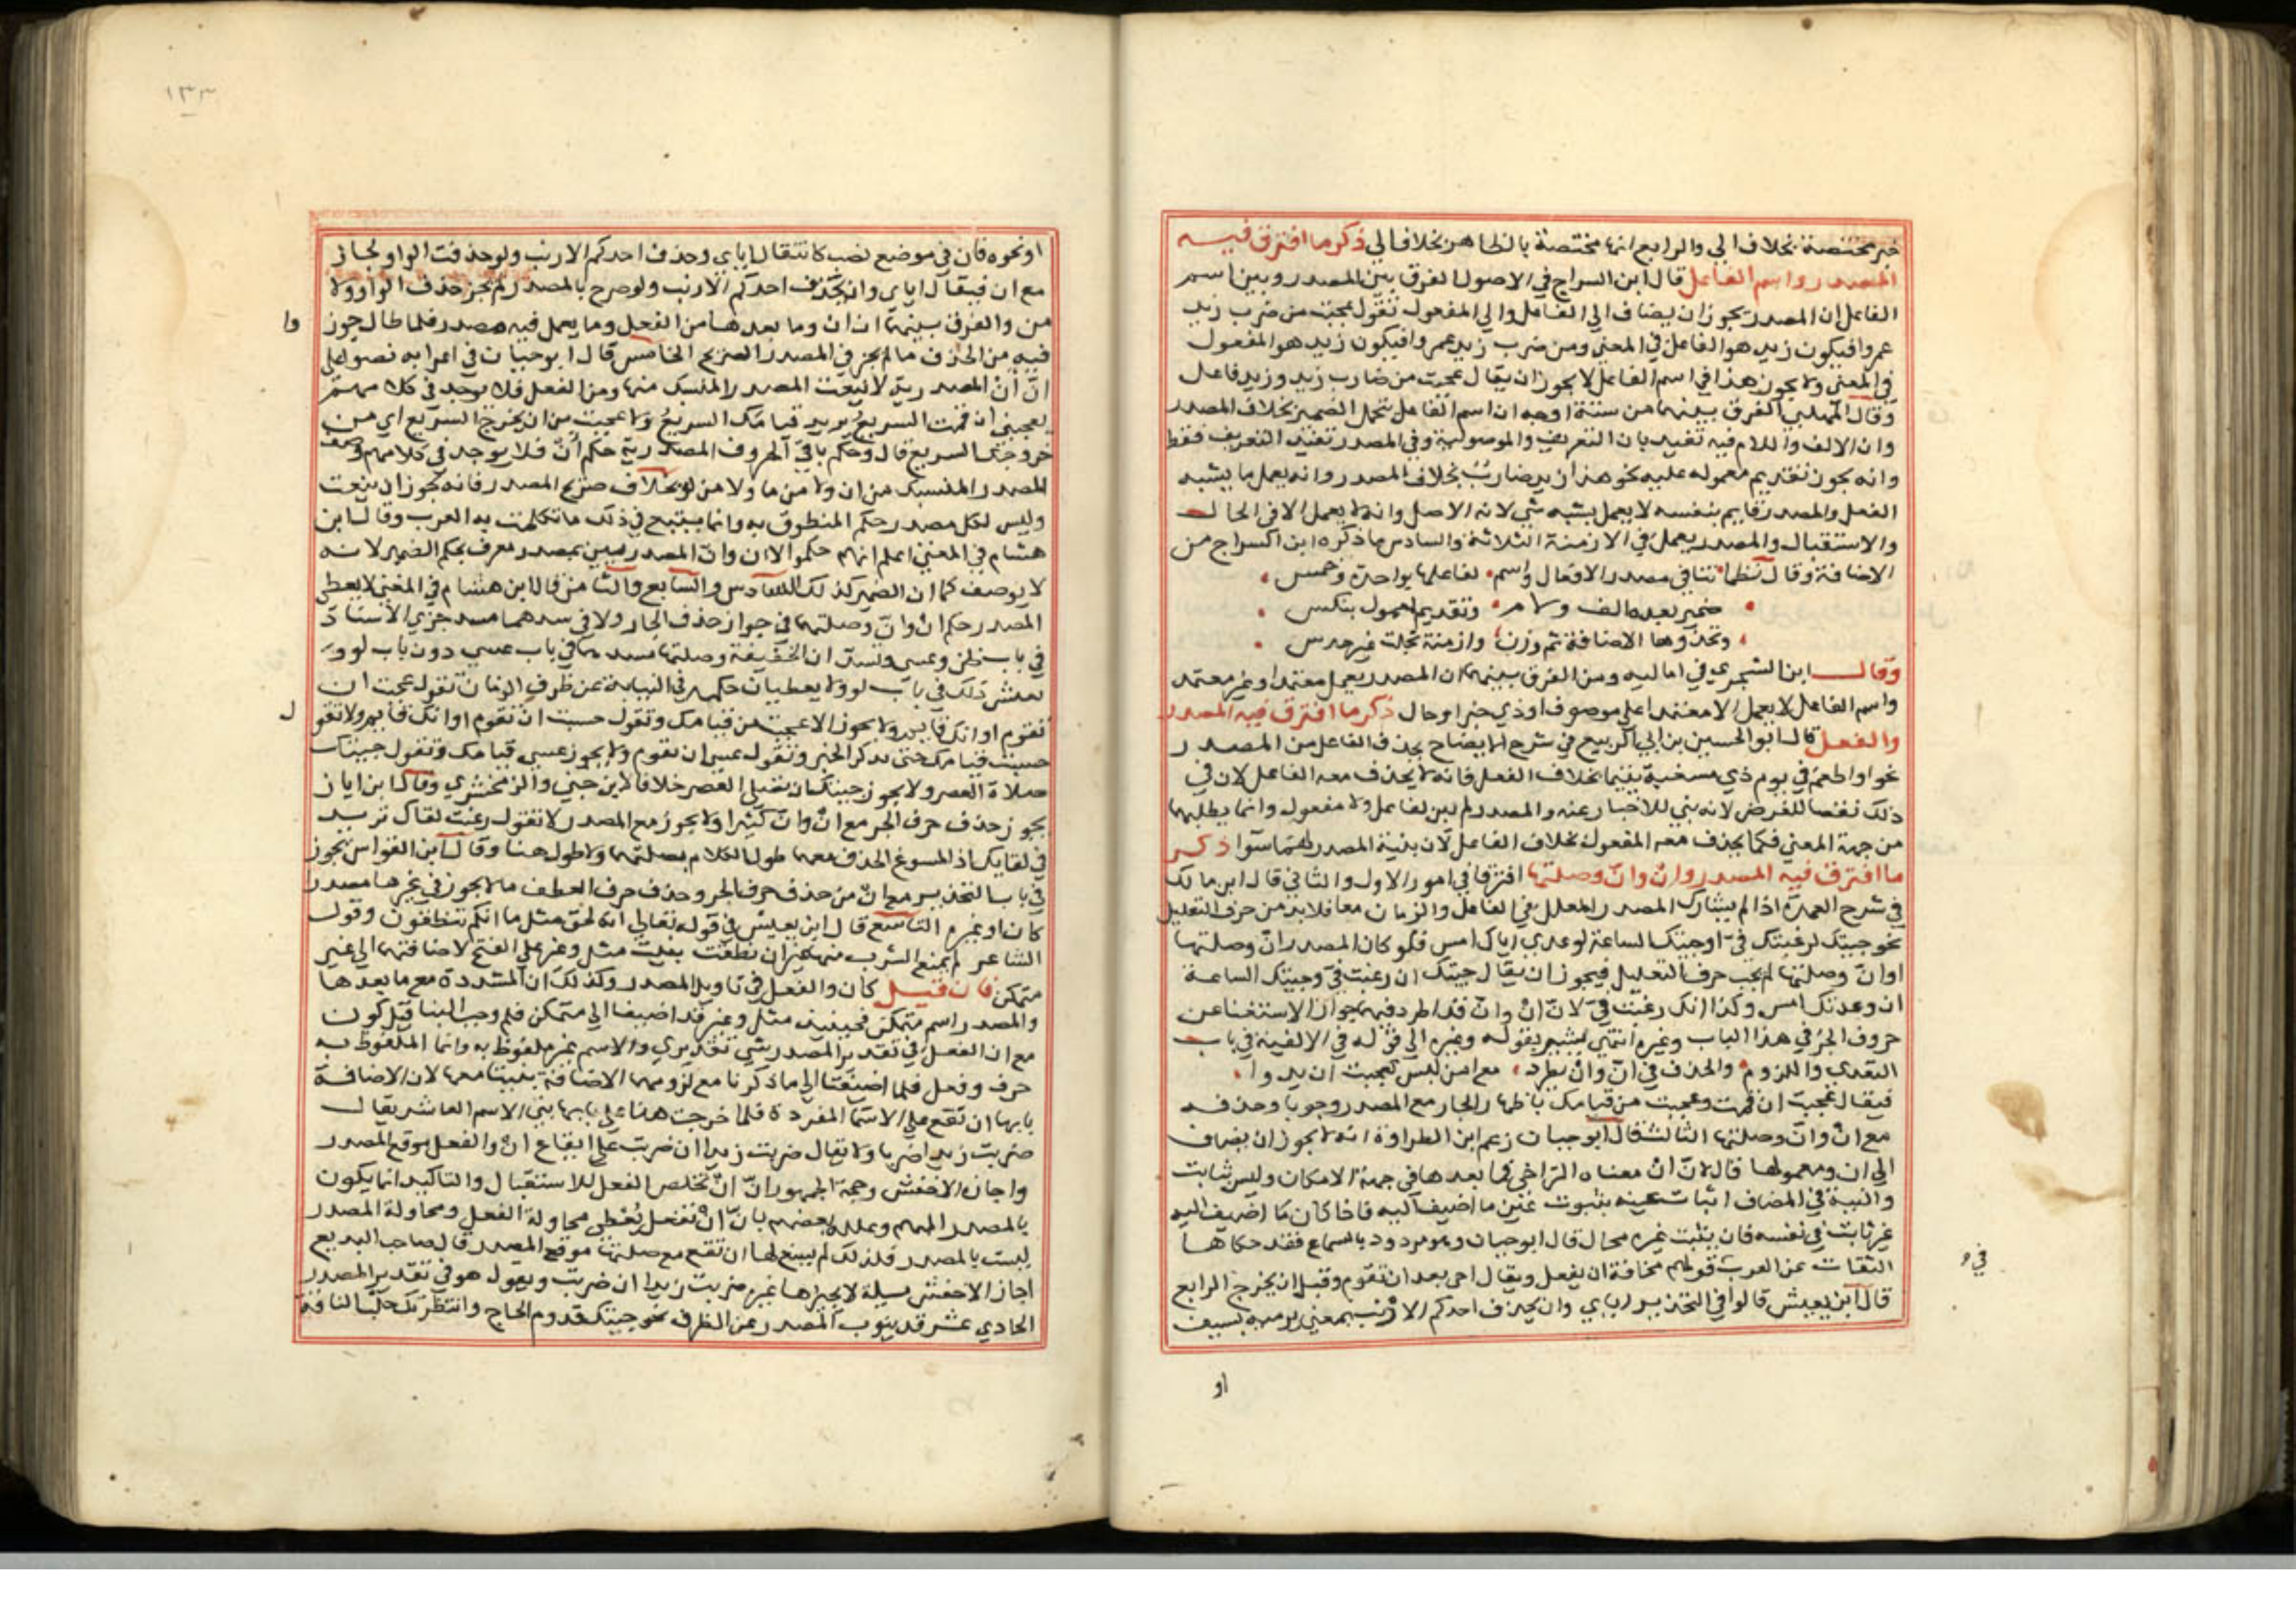 خبر مختصة بخلاف الي والرابع انها مختصة بالظاهر بخلاف الي ذكر ما افترق فيه
المصدر واسم الفاعل قال ابن السراج في الاصول الفرق بين المصدر وبين اسم
الفاعل ان المصدر يجوز ان يضاف الي الفاعل والي المفعول تقول عجبت من ضرب زيد
عمرو افيكون زيد هو الفاعل في المعني ومن ضرب زيد عمرو افيكون زيد هو المفعول
في المعني ولا يجوز هذا في اسم الفاعل لا يجوز ان يقال عجبت من ضارب زيد وزيد فاعل
وقال المهلبي الفرق بينهما من ستة اوجه ان اسم الفاعل يتحمل الضمير بخلاف المصدر
وان الالف واللام فيه تفيد بان التعريف والموصولية وفي المصدر تفيد التعريف فقط
وانه يجوز تقديم معموله عليه نحو هذا زيد ضارب بخلاف المصدر وانه يعمل ما يشبه
الفعل والمصدر قايم بنفسه لا يعمل بشبه شي لانه الاصل وانه لا يعمل الا في الحال
والاستقبال والمصدر يعمل في الازمنة الثلاثة والسادس ما ذكره ابن السراج من
الاضافة وقال نظما تنافي مصدر الافعال واسم لفاعلها بواحدة وخمس
ضمير بعده الف ولام وتقديم لمعمول بنكس
وتحذوها الاضافة ثم وزن وازمنة تجلت غير حدس
وقال ابن الشجري في اماليه ومن الفرق بينهما ان المصدر يعمل معتمدا وغير معتمد
واسم الفاعل لا يعمل الا معتمدا علي موصوف او ذي خبر او حال ذكر ما افترق فيه المصدر
والفعل قال ابو الحسين بن ابي الربيع في شرح الايضاح يحذف الفاعل من المصدر
نحو او اطعم في يوم ذي مسغبة يتيما بخلاف الفعل فانه لا يحذف معه الفاعل لان في
ذلك نقضا للغرض لانه بني للاخبار عنه والمصدر لم يبن لفاعل ولا مفعول وانما يطلبهما
من جهة المعني فكما يحذف معه المفعول بخلاف الفاعل لان بنية المصدر لهما سوا ذكر
ما افترق فيه المصدر وان وان وصلتها افترقا في امور الاول والثاني قال ابن مالك
في شرح العمدة اذا لم يشارك المصدر المعلل في الفاعل والزمان معا فلا بد من حرف التعليل
نحو جيتك لرغبتك في او جيتك الساعة لوعدي اياك امس فلو كان المصدر ان وصلتها
او ان وصلتها لم يجب حرف التعليل فيجوز ان يقال جيتك ان رغبت في وجيتك الساعة
ان وعدتك امس وكذا انك رغبت في لان ان وان قد اطرد فيهما جواز الاستغنا عن
حروف الجر في هذا الباب وغيره انتهي يشير بقوله وغيره الي قوله في الالفية في باب
التعدي واللزوم والحذف في ان وان يطرد مع امن لبس كعجبت ان يدوا
فيقال عجبت ان قمت وعجبت من قيامك باظهار الجار مع المصدر وجوبا وحذفه
مع ان وان وصلتها الثالث قال ابو حيان زعم ابن الطراوة انه لا يجوز ان يضاف
الي ان ومعمولها قال لان ان معناه التراخي فما بعدها في جهة الامكان وليس بثابت
والنية في المضاف اثبات عينه بثبوت عين ما اضيف اليه فاذا كان ما اضيف اليه
غير ثابت في نفسه فان يثبت غيره محال قال ابو حيان وهو مردود بالسماع فقد حكاها
الثقات عن العرب قولهم مخافة ان يفعل ويقال اجي بعد ان تقوم وقبل ان يخرج الرابع
قال ابن يعيش قالوا في التحذير اياي وان يحذف احدكم الارنب بمعني يرميه بسيف
او
١٣٣
او نحوه فان في موضع نصب كانك قال اياي وحذف احدكم الارنب ولو حذفت الواو لجاز
مع ان فيقال اياي وان يحذف احدكم الارنب ولو صرح بالمصدر لم يجز حذف الواو ولا
من والفرق بينهما ان ان وما بعدها من الفعل وما يعمل فيه مصدر فلما طال جوز
فيه من الحذف ما لم يجز في المصدر الصريح الخامس قال ابو حيان في اعرابه نصوا علي
ان ان المصدرية لا ينعت المصدر المنسبك منها ومن الفعل فلا يوجد في كلامهم
يعجبني ان قمت السريع يريد قيامك السريع ولا عجبت من ان يخرج السريع اي من
خروجه السريع قال وحكم باقي الحروف المصدرية حكم ان فلا يوجد في كلامهم وصف
المصدر المنسبك من ان ولا من ما ولا من لو بخلاف صريح المصدر فانه يجوز ان ينعت
وليس لكل مصدر حكم المنطوق به وانما يتبع في ذلك ما تكلمت به العرب وقال ابن
هشام في المغني اعلم انهم حكموا لان وان المصدريين بمصدر معرف بحكم الضمير لانه
لا يوصف كما ان الضمير كذلك السادس والسابع والثامن قال ابن هشام في المغني لا يعطي
المصدر حكم ان وان وصلتها في جواز حذف الجار ولا في سدهما مسد جزي الاسناد
في باب ظن وعسي وتسد ان الخفيفة وصلتها مسدهما في باب عسي دون باب لو و
تعكس ذلك في باب لو ولا يعطيان حكمه في النيابة عن ظرف الزمان تقول عجبت ان
تقوم او انك قايم ولا يجوز الا عجبت من قيامك وتقول حسبت ان تقوم او انك قايم ولا تقول
حسبت قيامك حتي تذكر الخبر وتقول عسي ان تقوم ولا يجوز عسي قيامك وتقول جيتك
صلاة العصر ولا يجوز جيتك ان تصلي العصر خلافا لابن جني والزمخشري وقال ابن اياز
يجوز حذف حرف الجر مع ان وان كثيرا ولا يجوز مع المصدر لا تقول رغبت لقاك تريد
في لقايك اذ المسوغ الحذف معها طول الكلام بصلتها ولا طول هنا وقال ابن القواس يجوز
في باب التحذير مع ان من حذف حرف الجر وحذف حرف العطف ما لا يجوز في غيرها مصدرا
كان او غيره التاسع قال ابن يعيش في قوله تعالي انه لحق مثل ما انكم تنطقون وقول
الشاعر لم يمنع الشرب منها غير ان نطقت بنيت مثل وغير علي الفتح لاضافتها الي غير
متمكن فان قيل كان والفعل في تاويل المصدر وكذلك ان المشددة مع ما بعدها
والمصدر اسم متمكن فحينيذ مثل وغير قد اضيفا الي متمكن فلم وجب البنا قيل كون
مع ان الفعل في تقدير المصدر شي تقديري والاسم غير ملفوظ به وانما الملفوظ به
حرف وفعل فلما اضيفتا الي ما ذكرنا مع لزومهما الاضافة بنيتا معها لان الاضافة
بابها ان تقع علي الاسما المفردة فلما خرجت هنا علي بابها بني الاسم العاشر يقال
ضربت زيدا ضربا ولا يقال ضربت زيدا ان ضربت علي ايقاع ان والفعل موقع المصدر
واجازه الاخفش وحجة الجمهور ان ان تخلص الفعل للاستقبال والتاكيد انما يكون
بالمصدر المبهم وعلله بعضهم بان ان تفعل يعطي محاولة الفعل ومحاولة المصدر
ليست بالمصدر فلذلك لم يسغ لها ان تقع مع صلتها موقع المصدر قال صاحب البديع
اجاز الاخفش مسيلة لا يجيزها غيره ضربت زيدا ان ضربت ويقول هو في تقدير المصدر
الحادي عشر قد ينوب المصدر عن الظرف نحو جيتك قدوم الحاج وانتظرتك حلب الناقة